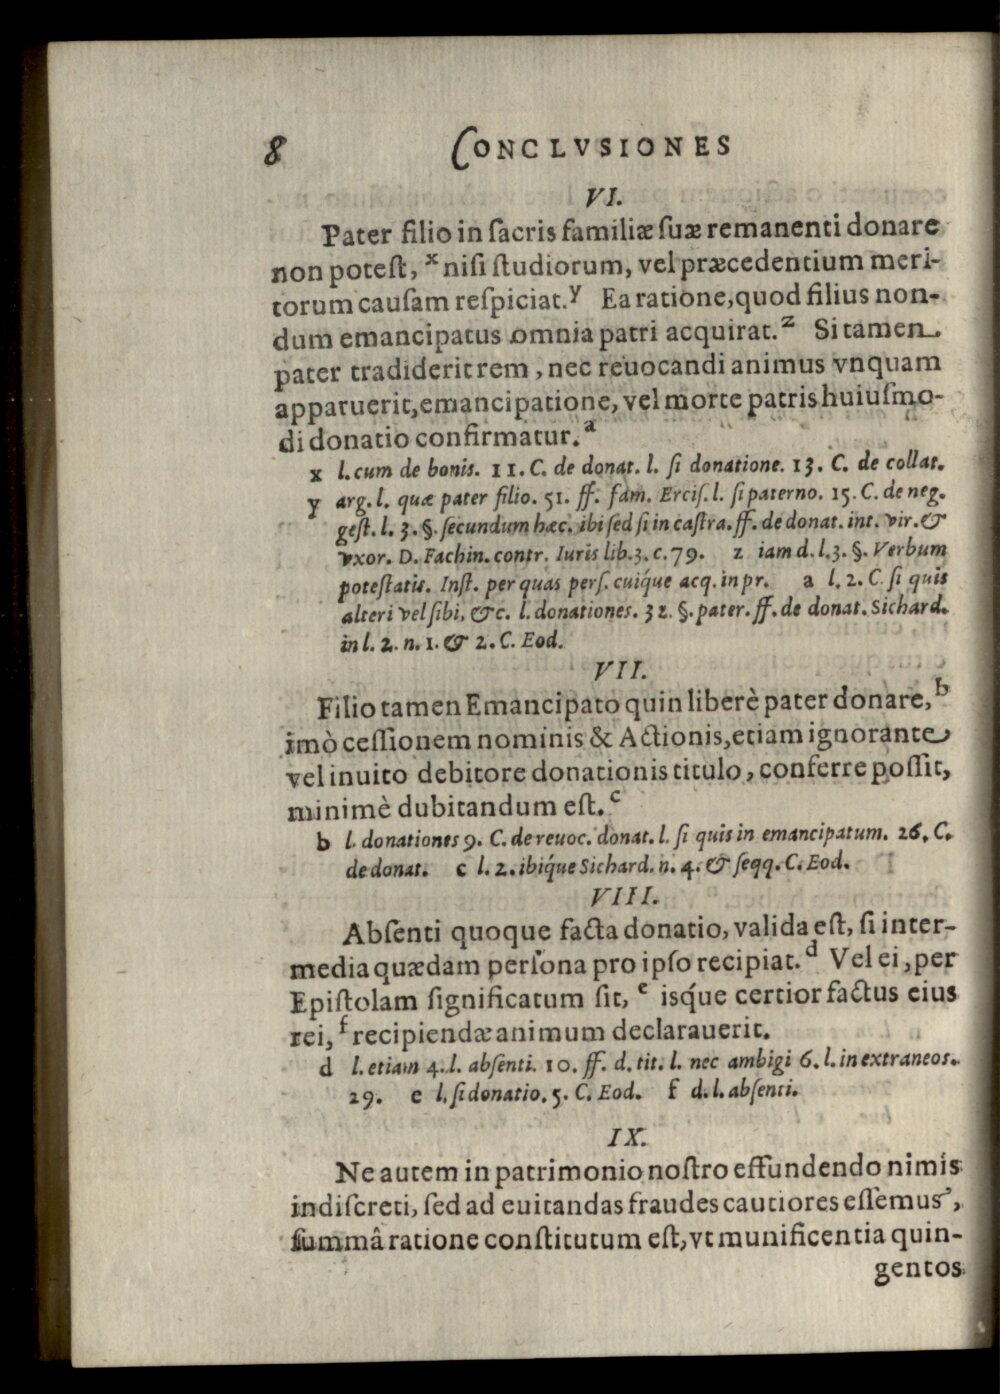 8 CONCLVSIONES
VI.
Pater filio in ſacris familiæ ſuæ remanenti donare
non poteſt, x niſi ſtudiorum, vel præcedentium meri-
torum cauſam reſpiciat. y Ea ratione, quod filius non-
dum emancipatus omnia patri acquirat. z Si tamen
pater tradiderit rem, nec reuocandi animus vnquam
apparuerit, emancipatione, vel morte patris huiuſmo-
di donatio confirmatur. a
x l. cum de bonis. 11. C. de donat. l. ſi donatione. 13. C. de collat.
y arg. l. quæ pater filio. 51. ff. fam. Erciſ. l. ſi paterno. 15. C. de neg.
geſt. l. 3. §. ſecundum hæc. ibi ſed ſi in caſtra. ff. de donat. int. vir. &
vxor. D. Fachin. contr. Iuris lib. 3. c. 79. z iam d. l. 3. §. Verbum
poteſtatis. Inſt. per quas perſ. cuiq́ue acq. in pr. a l. 2. C. ſi quis
alteri vel ſibi, &c. l. donationes. 32. §. pater. ff. de donat. Sichard.
in l. 2. n. 1. & 2. C. Eod.
VII.
Filio tamen Emancipato quin liberè pater donare, b
imò ceſſionem nominis & Actionis, etiam ignorante
vel inuito debitore donationis titulo, conferre poſſit,
minimè dubitandum eſt. c
b l. donationes 9. C. de reuoc. donat. l. ſi quis in emancipatum. 26. C.
de donat. c l. 2. ibiq́ue Sichard. n. 4. & ſeqq. C. Eod.
VIII.
Abſenti quoque facta donatio, valida eſt, ſi inter-
media quædam perſona pro ipſo recipiat. d Vel ei, per
Epiſtolam ſignificatum ſit, e isq́ue certior factus eius
rei, f recipiendæ animum declarauerit.
d l. etiam 4. l. abſenti. 10. ff. d. tit. l. nec ambigi 6. l. in extraneos.
29. e l. ſi donatio. 5. C. Eod. f d. l. abſenti.
IX.
Ne autem in patrimonio noſtro effundendo nimis
indiſcreti, ſed ad euitandas fraudes cautiores eſſemus,
ſummâ ratione conſtitutum eſt, vt munificentia quin-
gentos